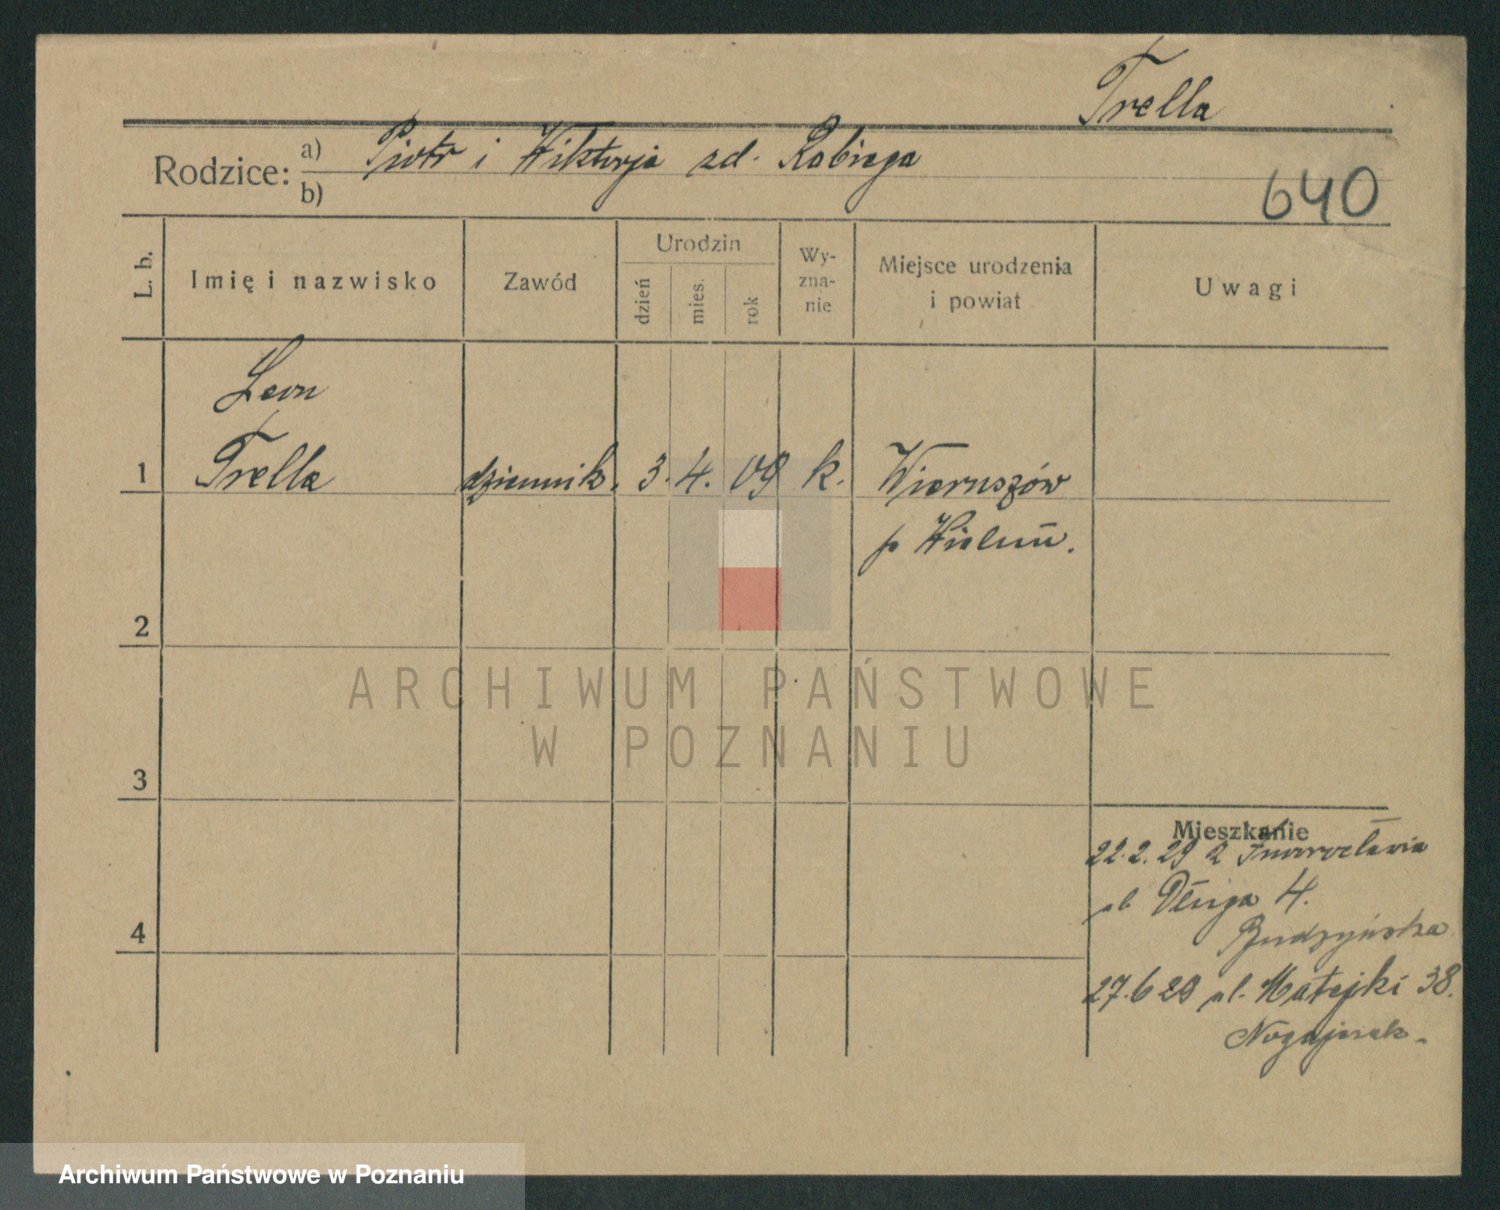 Trella
Rodzice: a) Piotr i Wiktorja zd. Rabiega
b)
640
L. b.
Imię i nazwisko
Zawód
Urodzin
dzień
mies.
rok
Wy-
zna-
nie
Miejsce urodzenia
i powiat
Uwagi
Leon
1 Trella dziennik. 3. 4. 09 k. Wieruszów
p Wieluń.
2
ARCHIWUM PAŃSTWOWE
W POZNANIU
3
Mieszkanie
22.2.29 z Inowrocławia
ul. Długa 4.
4
Budzyńska
27.6 29 ul. Matejki 38.
Nogajczak.
Archiwum Państwowe w Poznaniu